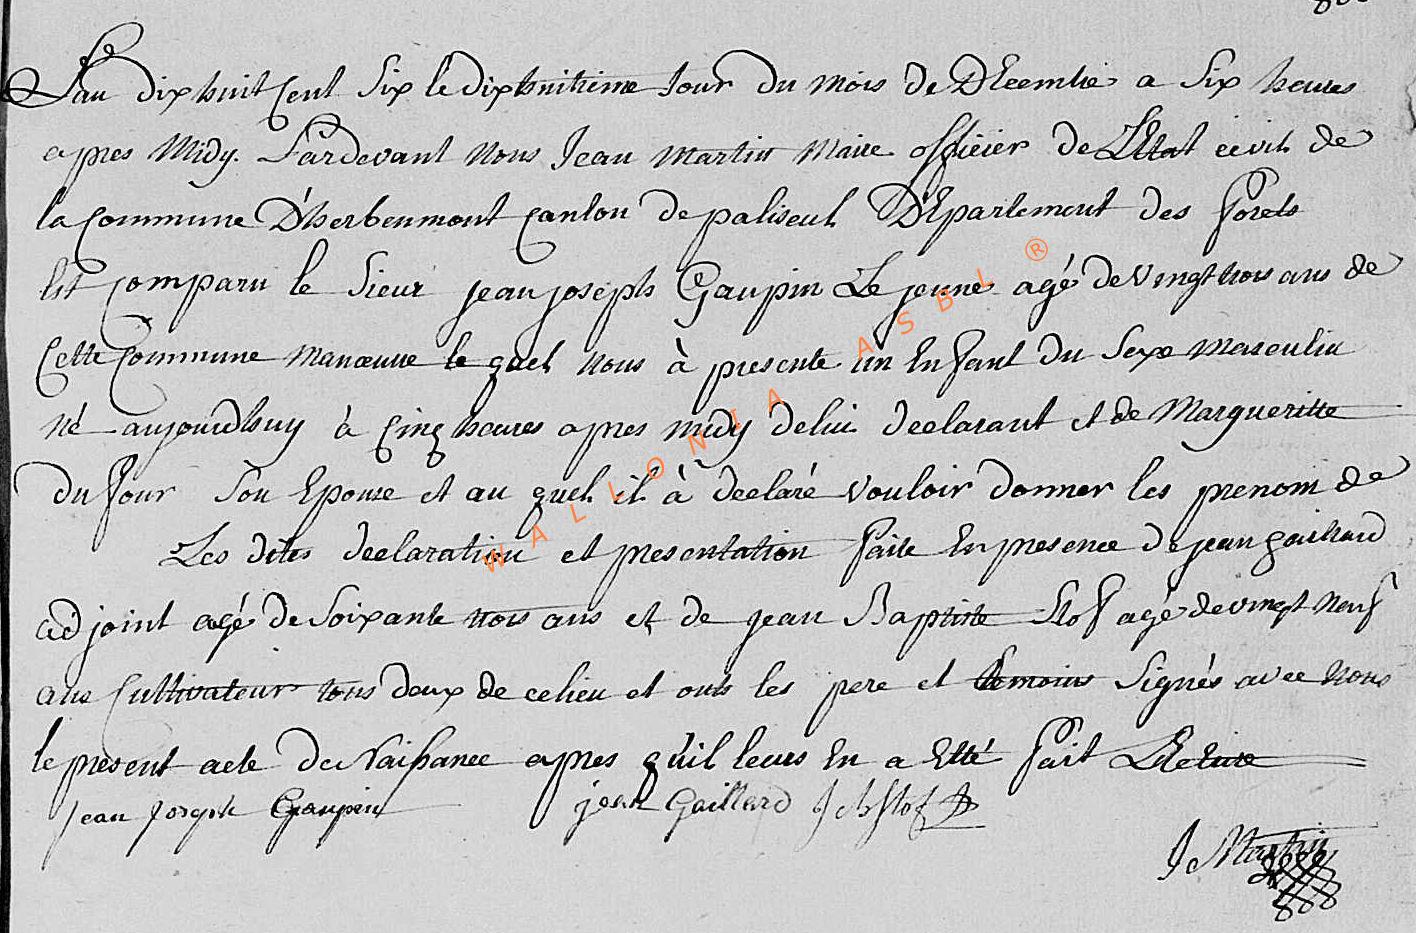 L'an dix huit Cent Six le dix huitieme Jour du mois de Décembre a Six heures
apres Midy. Pardevant Nous Jean Martin Maire officier de L'Etat ceivil de
la Commune D'herbeumont Canton de paliseul Département des Forets
Est Comparu le Sieur jean joseph Gaupin Le jeune agé de vingt trois ans de
Cette Commune manœuvre le quel nous à presente un Enfant du Sexe masculin
né aujourdhuy à Cinq heures apres midy de lui declarant et de Margueritte
du four Son Epouse et au quel il à declaré vouloir donner les prenom de
Les dites declaration et presentation faite En presence de jean gaillard
adjoint agé de Soixante trois ans et de jean Baptiste Stof agé de vingt neuf
ans Cultivateur tous deux de ce lieu et onts les pere et temoins Signés avec nous
le present acte de Naissance apres qu'il leurs En a Etté fait Lecture
Jean Joseph Gaupin jean Gaillard J Bstof
J Martin
WALLONIA ASBL ®